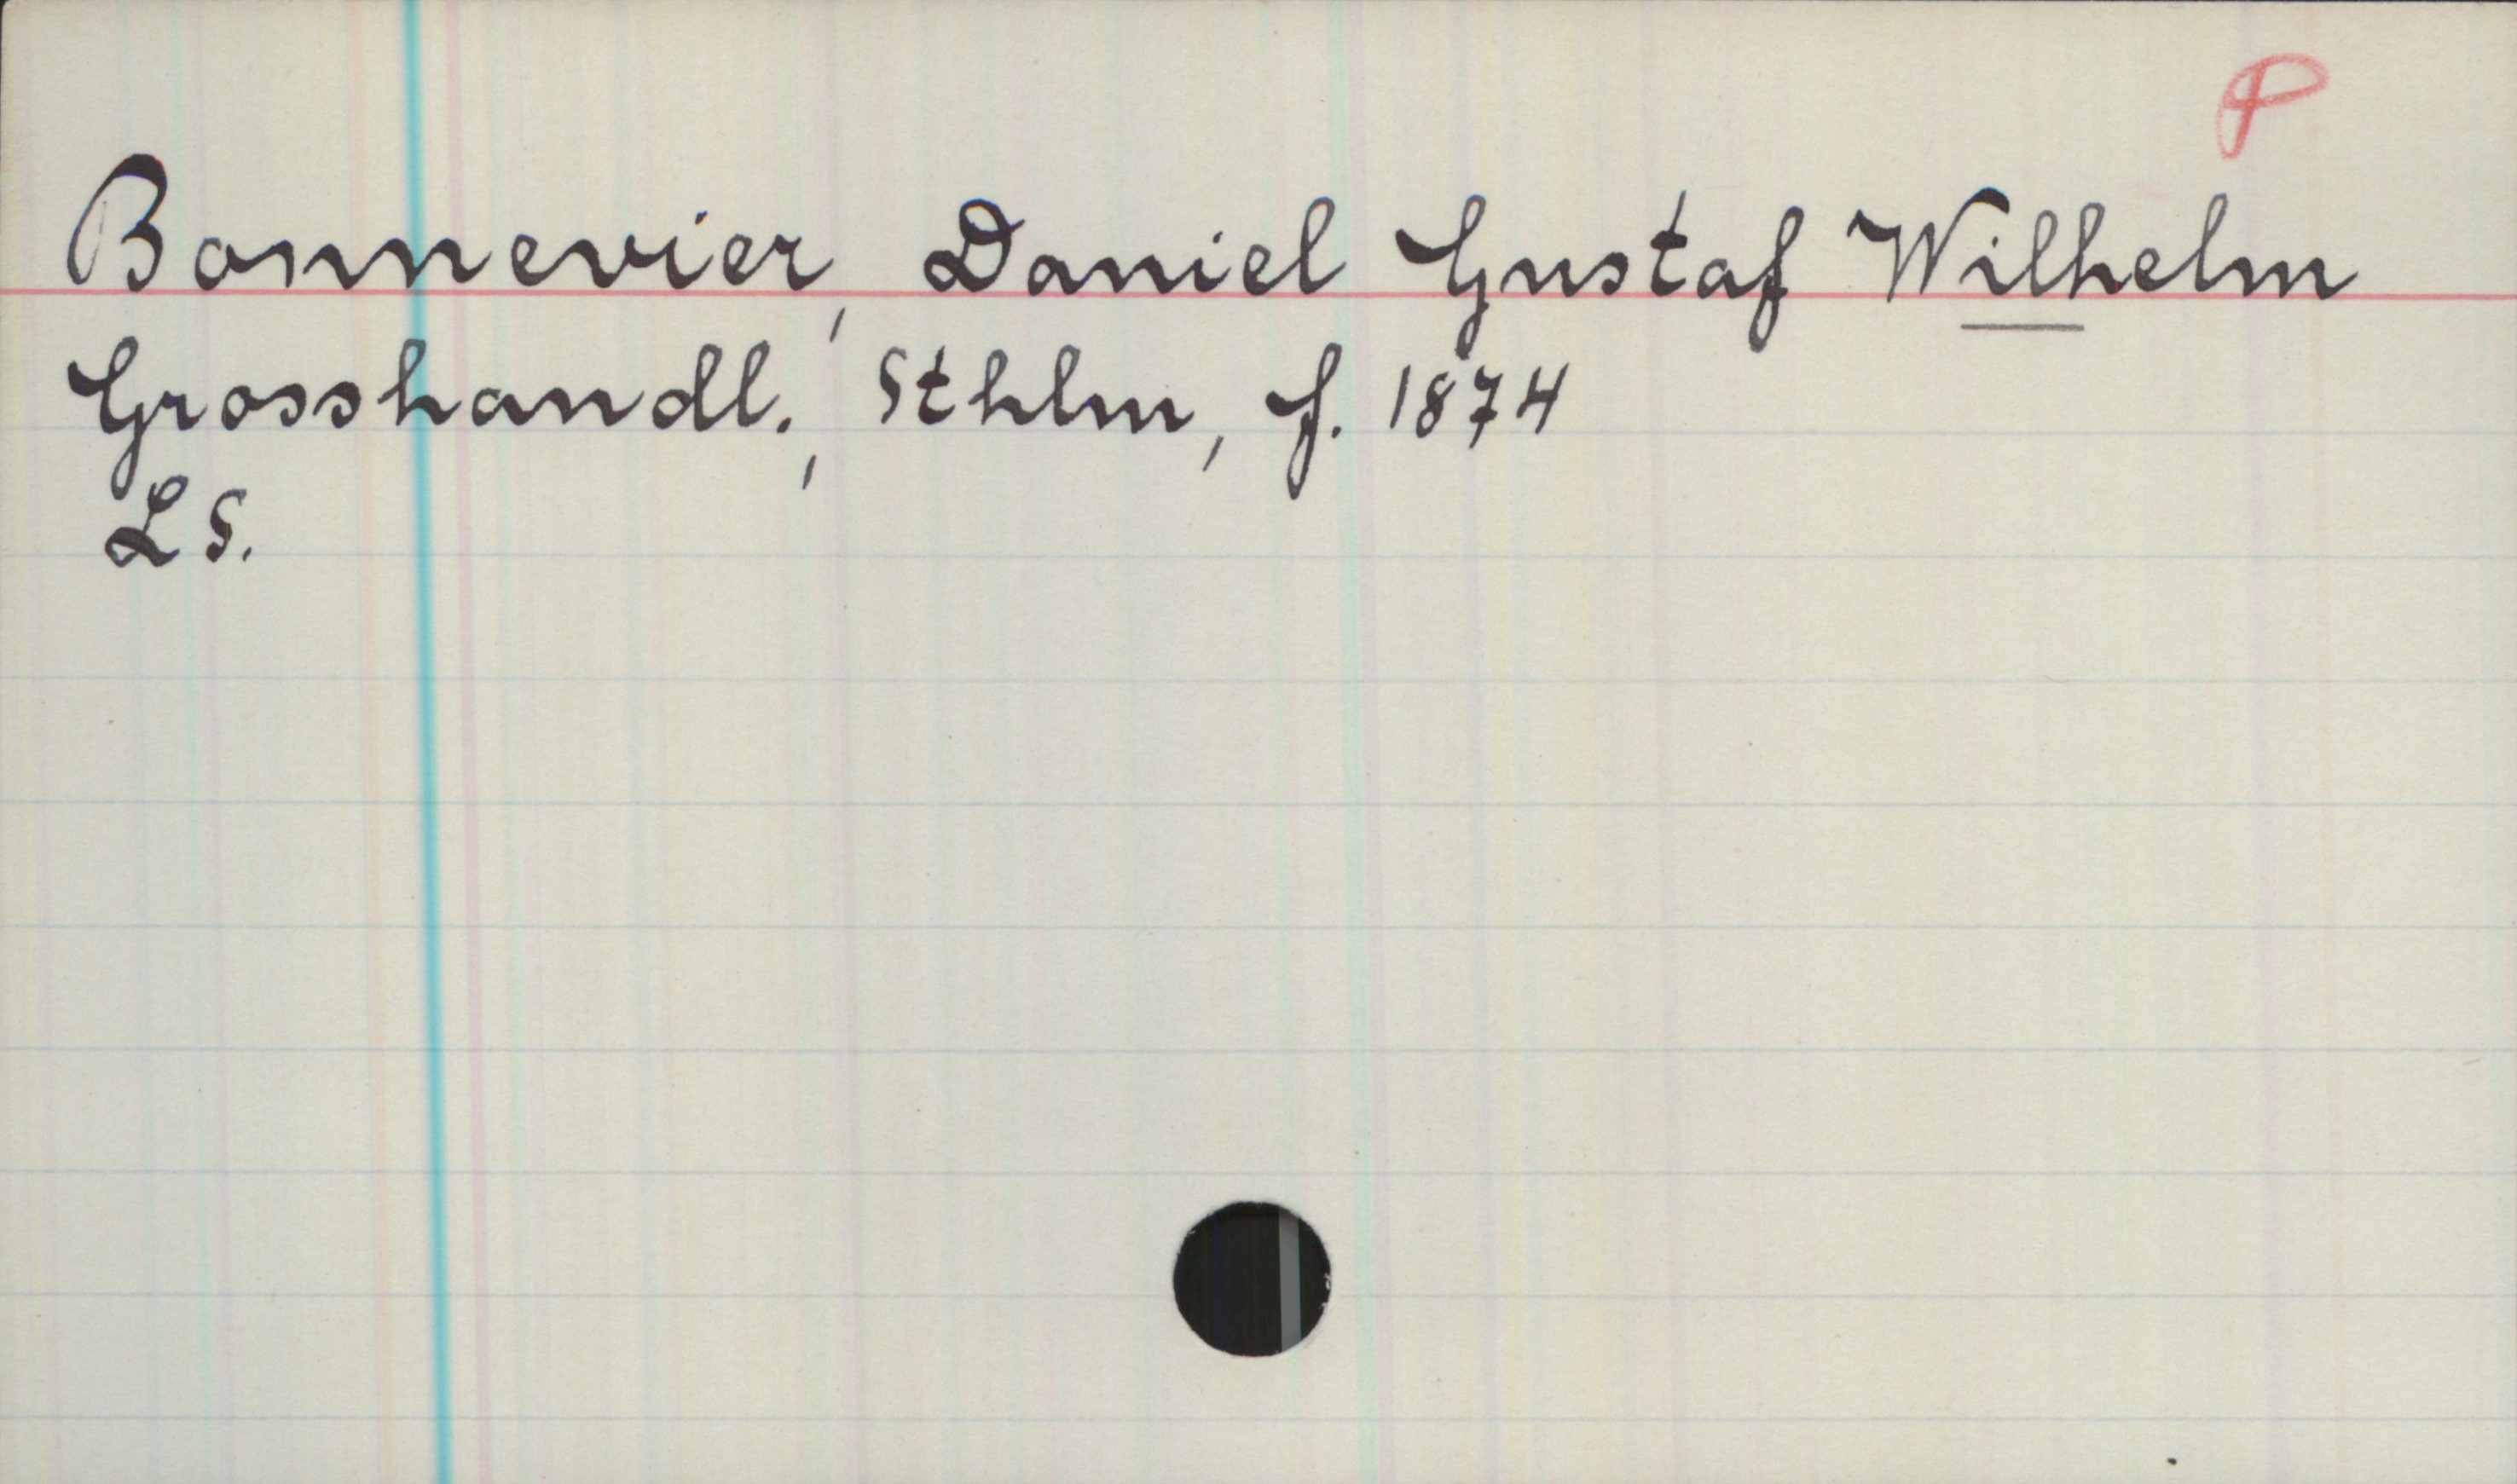 P
Bonnevier, Daniel Gustaf Wilhelm
Grosshandl., Sthlm, f. 1874
LS.